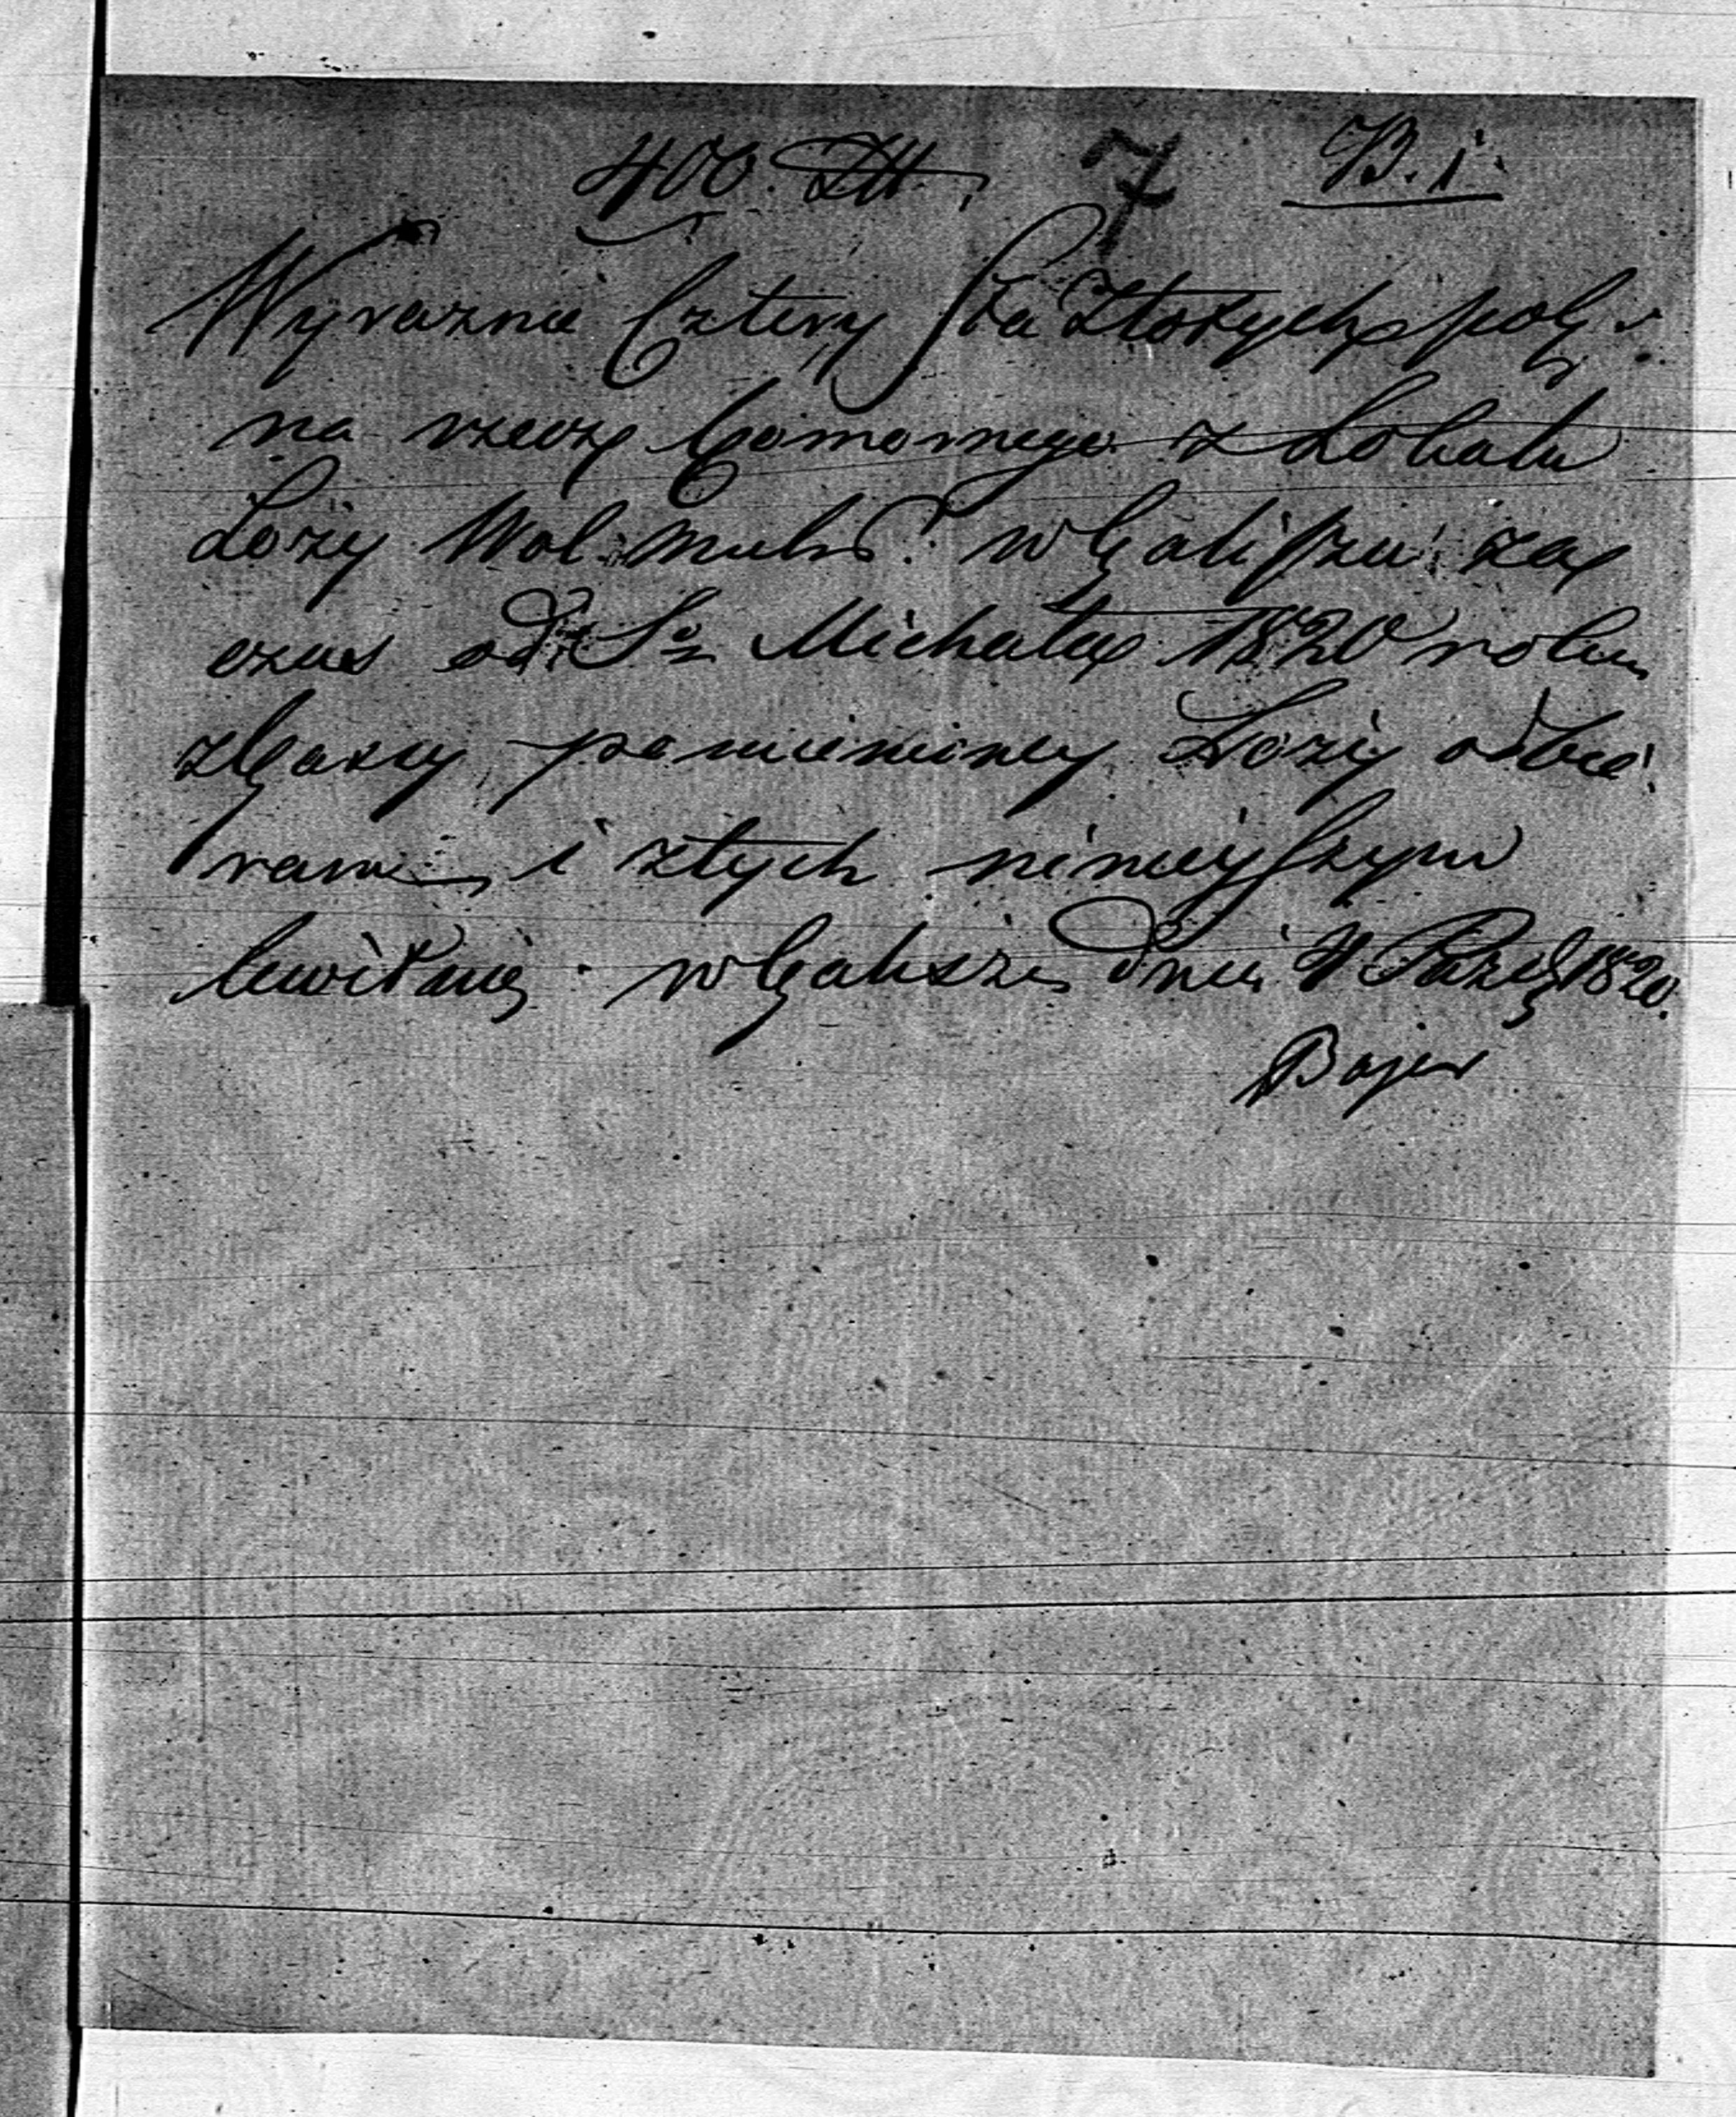 400. Złł. 7 B. 1.
Wyraznie Cztery Sta Złotych pol.
na rzecz Komornego z Lokalu
Loży Wol. Mular. w Kaliszu za
czas od S° Michała 1820 roku
z Kassy pomienioney Loży odbie¬
ram i z tych ninieyszym
kwituię. w Kaliszu dnia Paźd. 1820.
Bajer